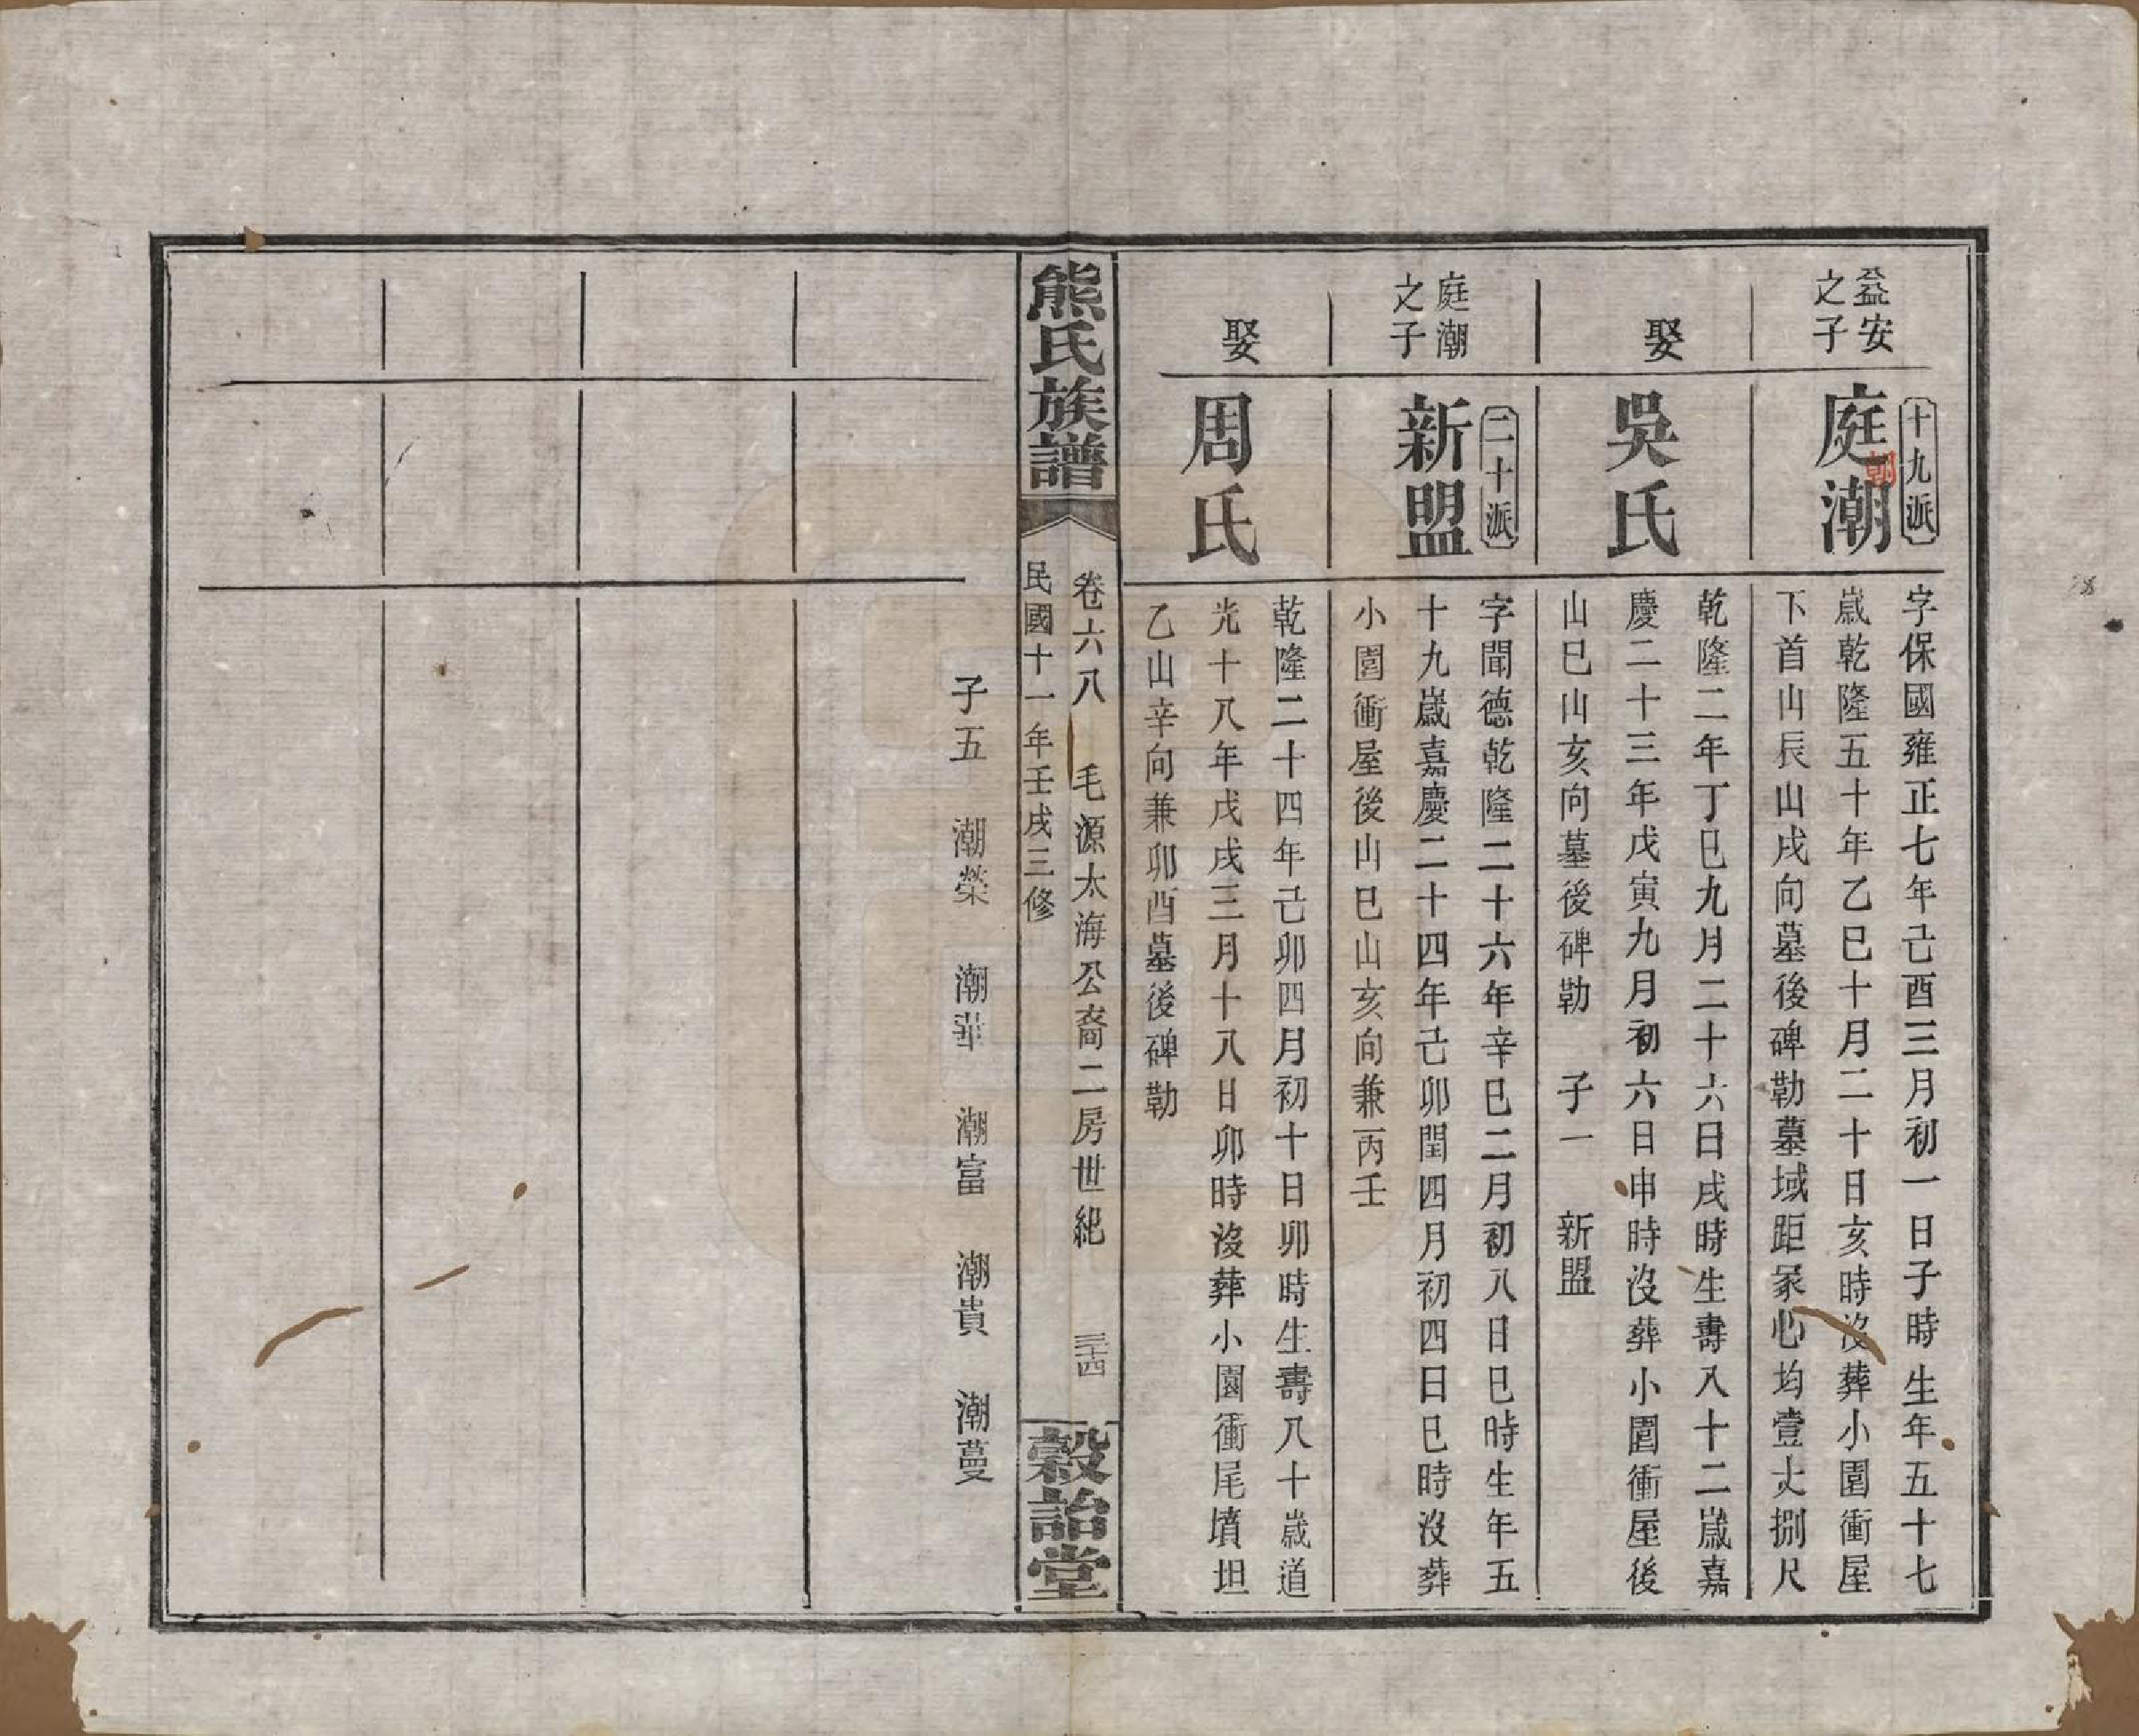 益安
之子
十九派
庭潮
字保國雍正七年己酉三月初一日子時生年五十七
歲乾隆五十年乙巳十月二十日亥時沒葬小園衝屋
下首山辰山戌向墓後碑勒墓域距冡心均壹丈捌尺
娶
吳氏
乾隆二年丁巳九月二十六日戌時生壽八十二歲嘉
慶二十三年戊寅九月初六日申時沒葬小園衝屋後
山巳山亥向墓後碑勒 子一 新盟
庭潮
之子
二十派
新盟
字聞德乾隆二十六年辛巳二月初八日巳時生年五
十九歲嘉慶二十四年己卯閏四月初四日巳時沒葬
小園衝屋後山巳山亥向兼丙壬
娶
周氏
乾隆二十四年己卯四月初十日卯時生壽八十歲道
光十八年戊戌三月十八日卯時沒葬小園衝尾墳坦
乙山辛向兼卯酉墓後碑勒
熊氏族譜
卷六八 毛源太海公裔二房世紀 三十四
民國十一年壬戌三修
穀詒堂
子五 潮榮 潮華 潮富 潮貴 潮蔓